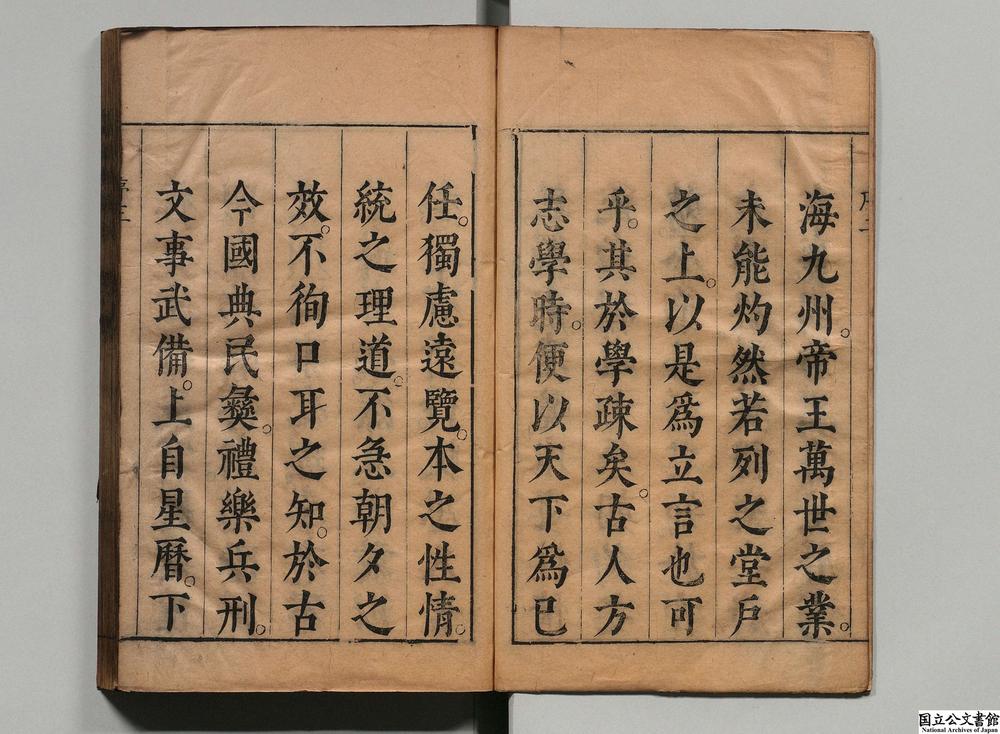 海九州。帝王萬世之業。
未能灼然若列之堂戶
之上。以是爲立言也可
乎。其於學疎矣。古人方
志學時。便以天下爲已
任。獨慮遠覽。本之性情。
統之理道。不急朝夕之
效。不徇口耳之知。於古
今國典民彝。禮樂兵刑。
文事武備。上自星曆。下
国立公文書館
National Archives of Japan